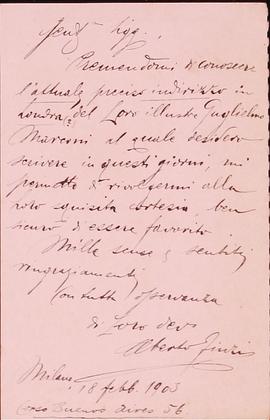 Gent. Sigg.,
Premendomi di conoscere
l'attuale preciso indirizzo in
Londra, del Loro illustre Guglielmo
Marconi al quale desidero
scrivere in questi giorni, mi
permetto di rivolgermi alla
loro squisita cortesia, ben
sicuro di essere favorito.
Mille scuse e sentiti
ringraziamenti
Con tutta osservanza
di Loro devo
Alberto Finzi
Milano, 18 febb. 1903
Corso Buenos Aires 56.